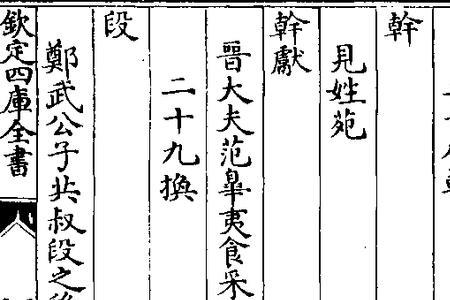 幹
見姓苑
幹獻
晉大夫范臯夷食采
二十九換
段
鄭武公子共叔段之後
欽定四庫全書